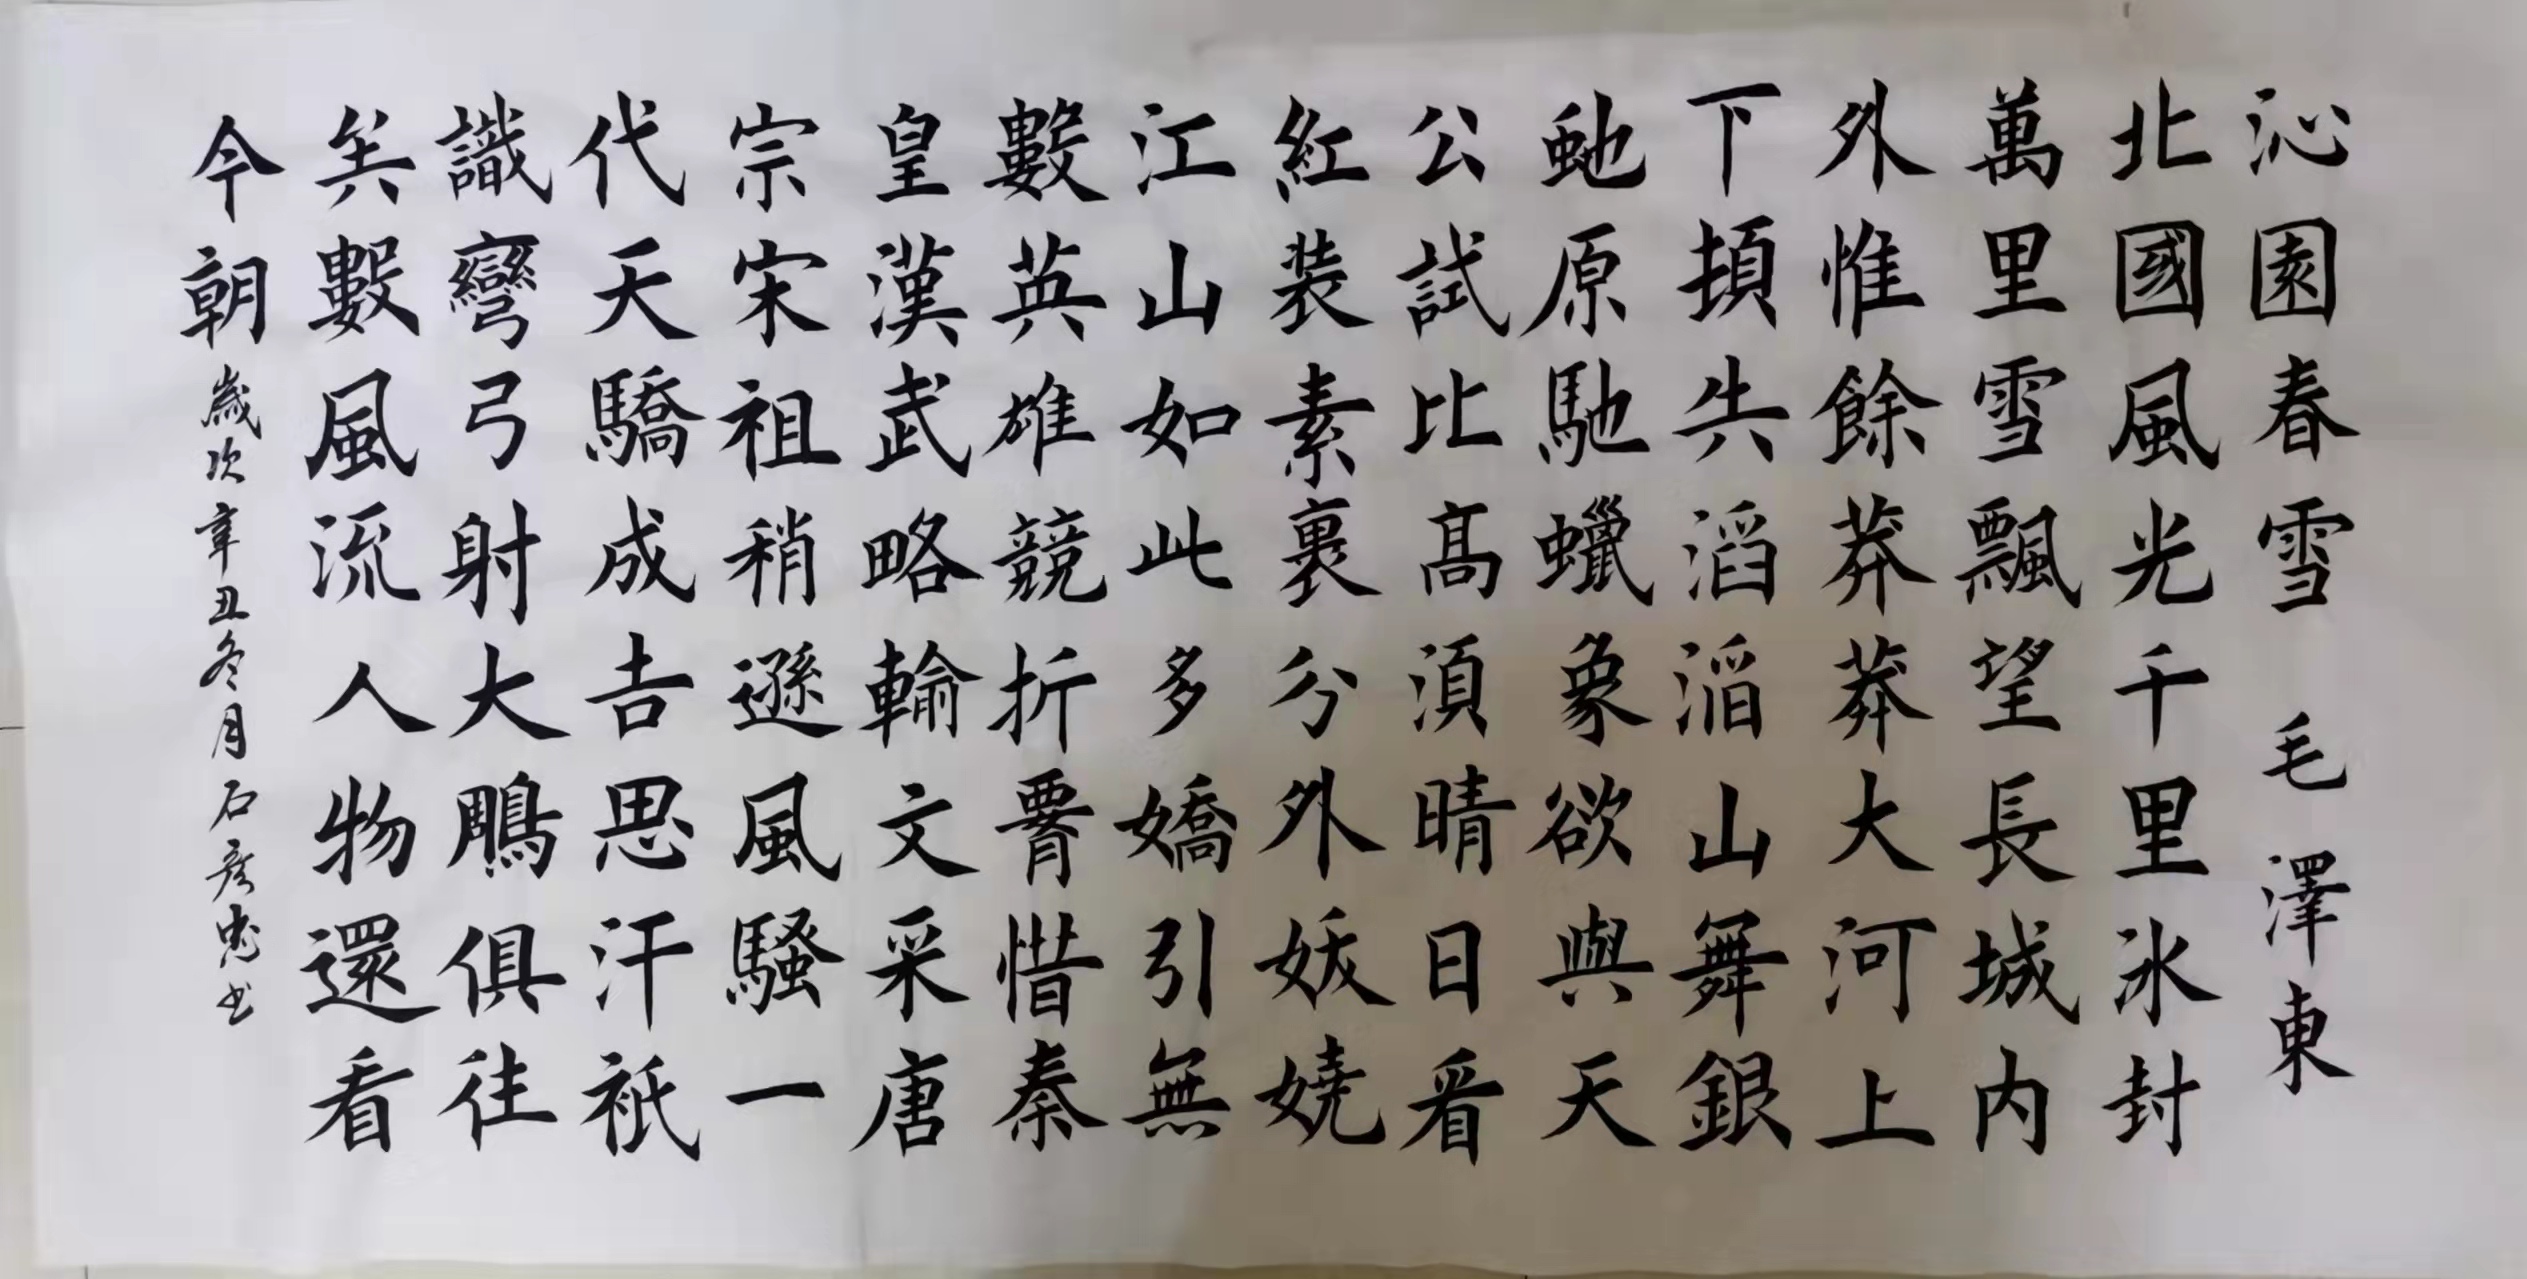 沁園春雪 毛澤東
北國風光千里氷封
萬里雪飄望長城内
外惟餘莽莽大河上
下頓失滔滔山舞銀
虵原馳蠟象欲與天
公試比髙須晴日看
紅装素裹分外妖嬈
江山如此多嬌引無
數英雄競折腰惜秦
皇漢武略輸文采唐
宗宋祖稍遜風騷一
代天驕成吉思汗衹
識彎弓射大鵰俱往
矣數風流人物還看
今朝 歲次辛丑冬月石彥忠书